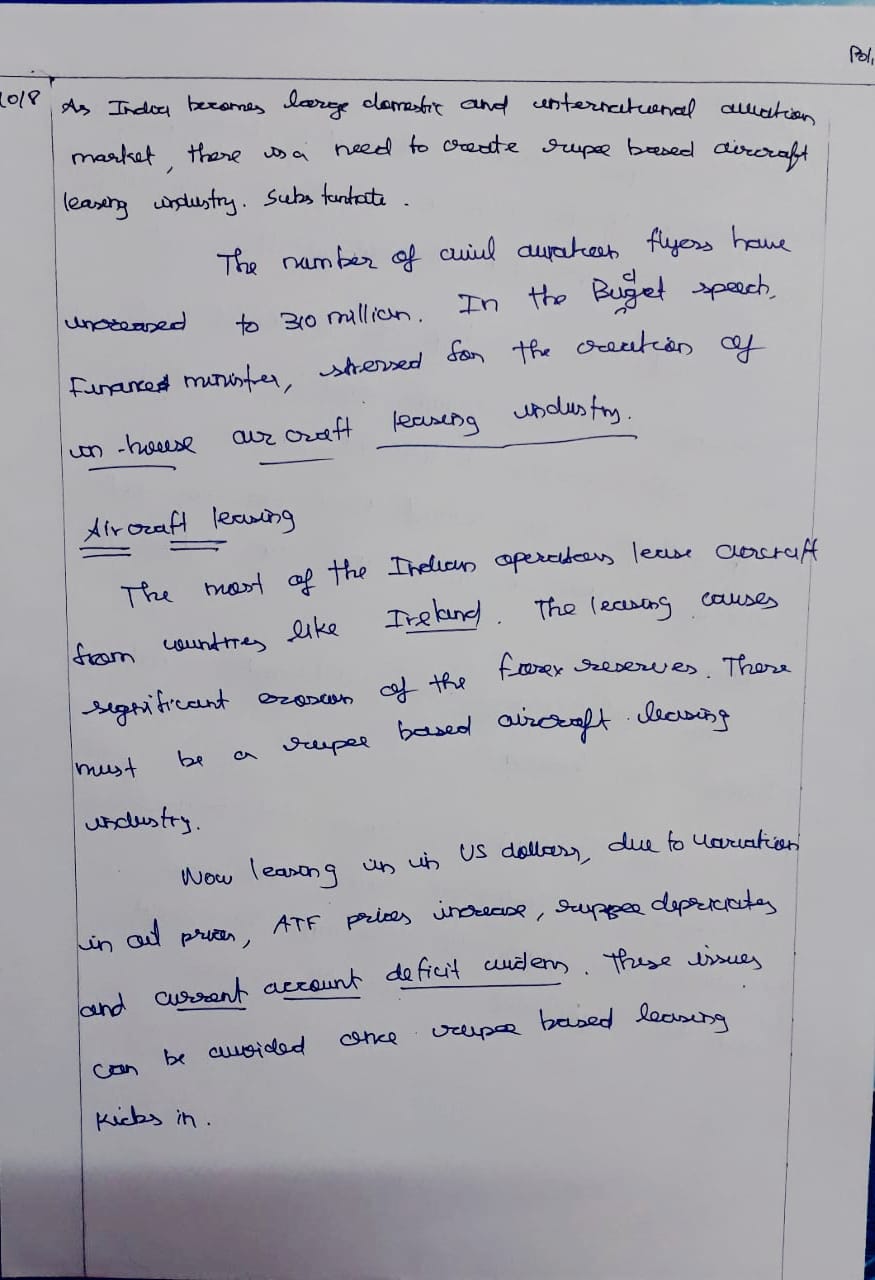 Pol,
10/8 As India becomes large domestic and international aviation
market, there is a need to create rupee based aircraft
leasing industry. Substantate.
The number of civil aviation flyers have
increased to 310 million. In the Budget speech,
Finance minister, stressed for the creation of
in-house air craft leasing industry.
Aircraft leasing
The most of the Indian operators lease aircraft
from countries like Ireland. The leasing causes
significant erosion of the forex reserves. There
must be a rupee based aircraft leasing
industry.
Now leasing is in US dollars, due to variation
in oil prices, ATF prices increase, ruppee depriciates
and current account deficit widens. These issues
can be avoided once rupee based leasing
kicks in.